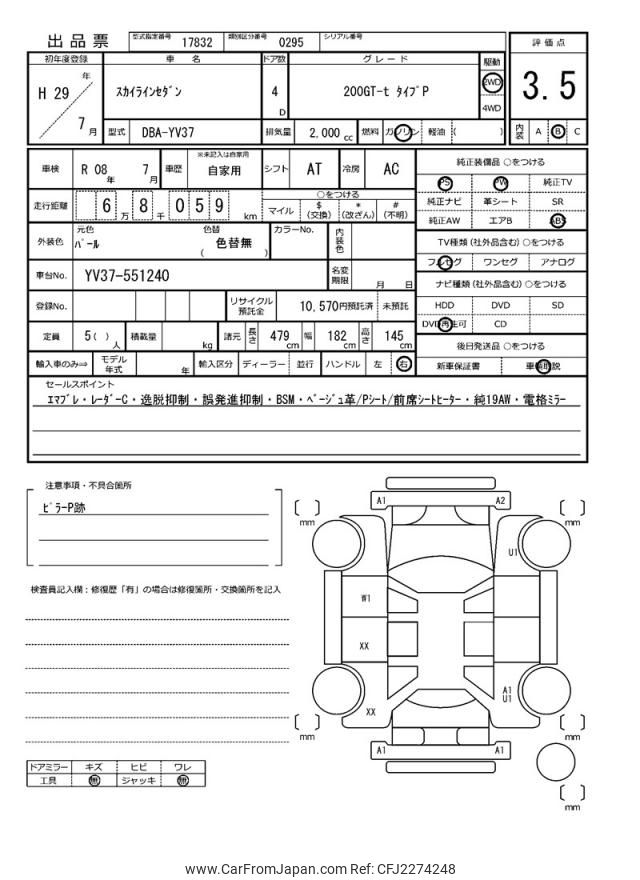 出品票 型式指定番号 17832 類別区分番号 0295 シリアル番号
評価点
3.5
内装 A B C
初年度登録 車名 ドア数 グレード 駆動
H 29年 7月 スカイラインセダン 4D 200GT-t タイプP 2WD 4WD
型式 DBA-YV37 排気量 2,000cc 燃料 ガソリン 軽油 ( )
車検 R 08年 7月 車歴 ※未記入は自家用 自家用 シフト AT 冷房 AC
走行距離 6万 8千 0 5 9 km ○をつける マイル $(交換) *(改ざん) #(不明)
外装色 元色 パール 色替 ( 色替無 ) カラーNo. 内装色
車台No. YV37-551240 名変期限 月 日
登録No. リサイクル預託金 10,570円預託済 未預託
定員 5( )人 積載量 kg 諸元 長さ 479cm 幅 182cm 高さ 145cm
輸入車のみ⇒ モデル年式 年 輸入区分 ディーラー 並行 ハンドル 左 右
純正装備品 ○をつける
PS PW 純正TV
純正ナビ 革シート SR
純正AW エアB ABS
TV種類 (社外品含む) ○をつける
フルセグ ワンセグ アナログ
ナビ種類 (社外品含む) ○をつける
HDD DVD SD
DVD再生可 CD
後日発送品 ○をつける
新車保証書 車輌取説
セールスポイント
エマブレ・レーダーC・逸脱抑制・誤発進抑制・BSM・ベージュ革/Pシート/前席シートヒーター・純19AW・電格ミラー
注意事項・不具合箇所
ピラーP跡
検査員記入欄：修復歴「有」の場合は修復箇所・交換箇所を記入
ドアミラー キズ ヒビ ワレ
工具 無 ジャッキ 無
A1 A2
mm mm
U1
W1
XX
A1
U1
XX
mm mm
A1 A1
mm
www.CarFromJapan.com Ref: CFJ2274248